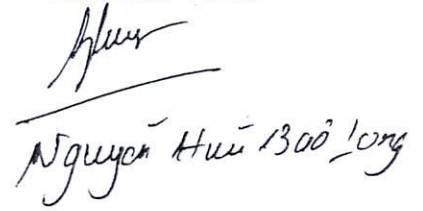 Nguyễn Hữu Bảo Long